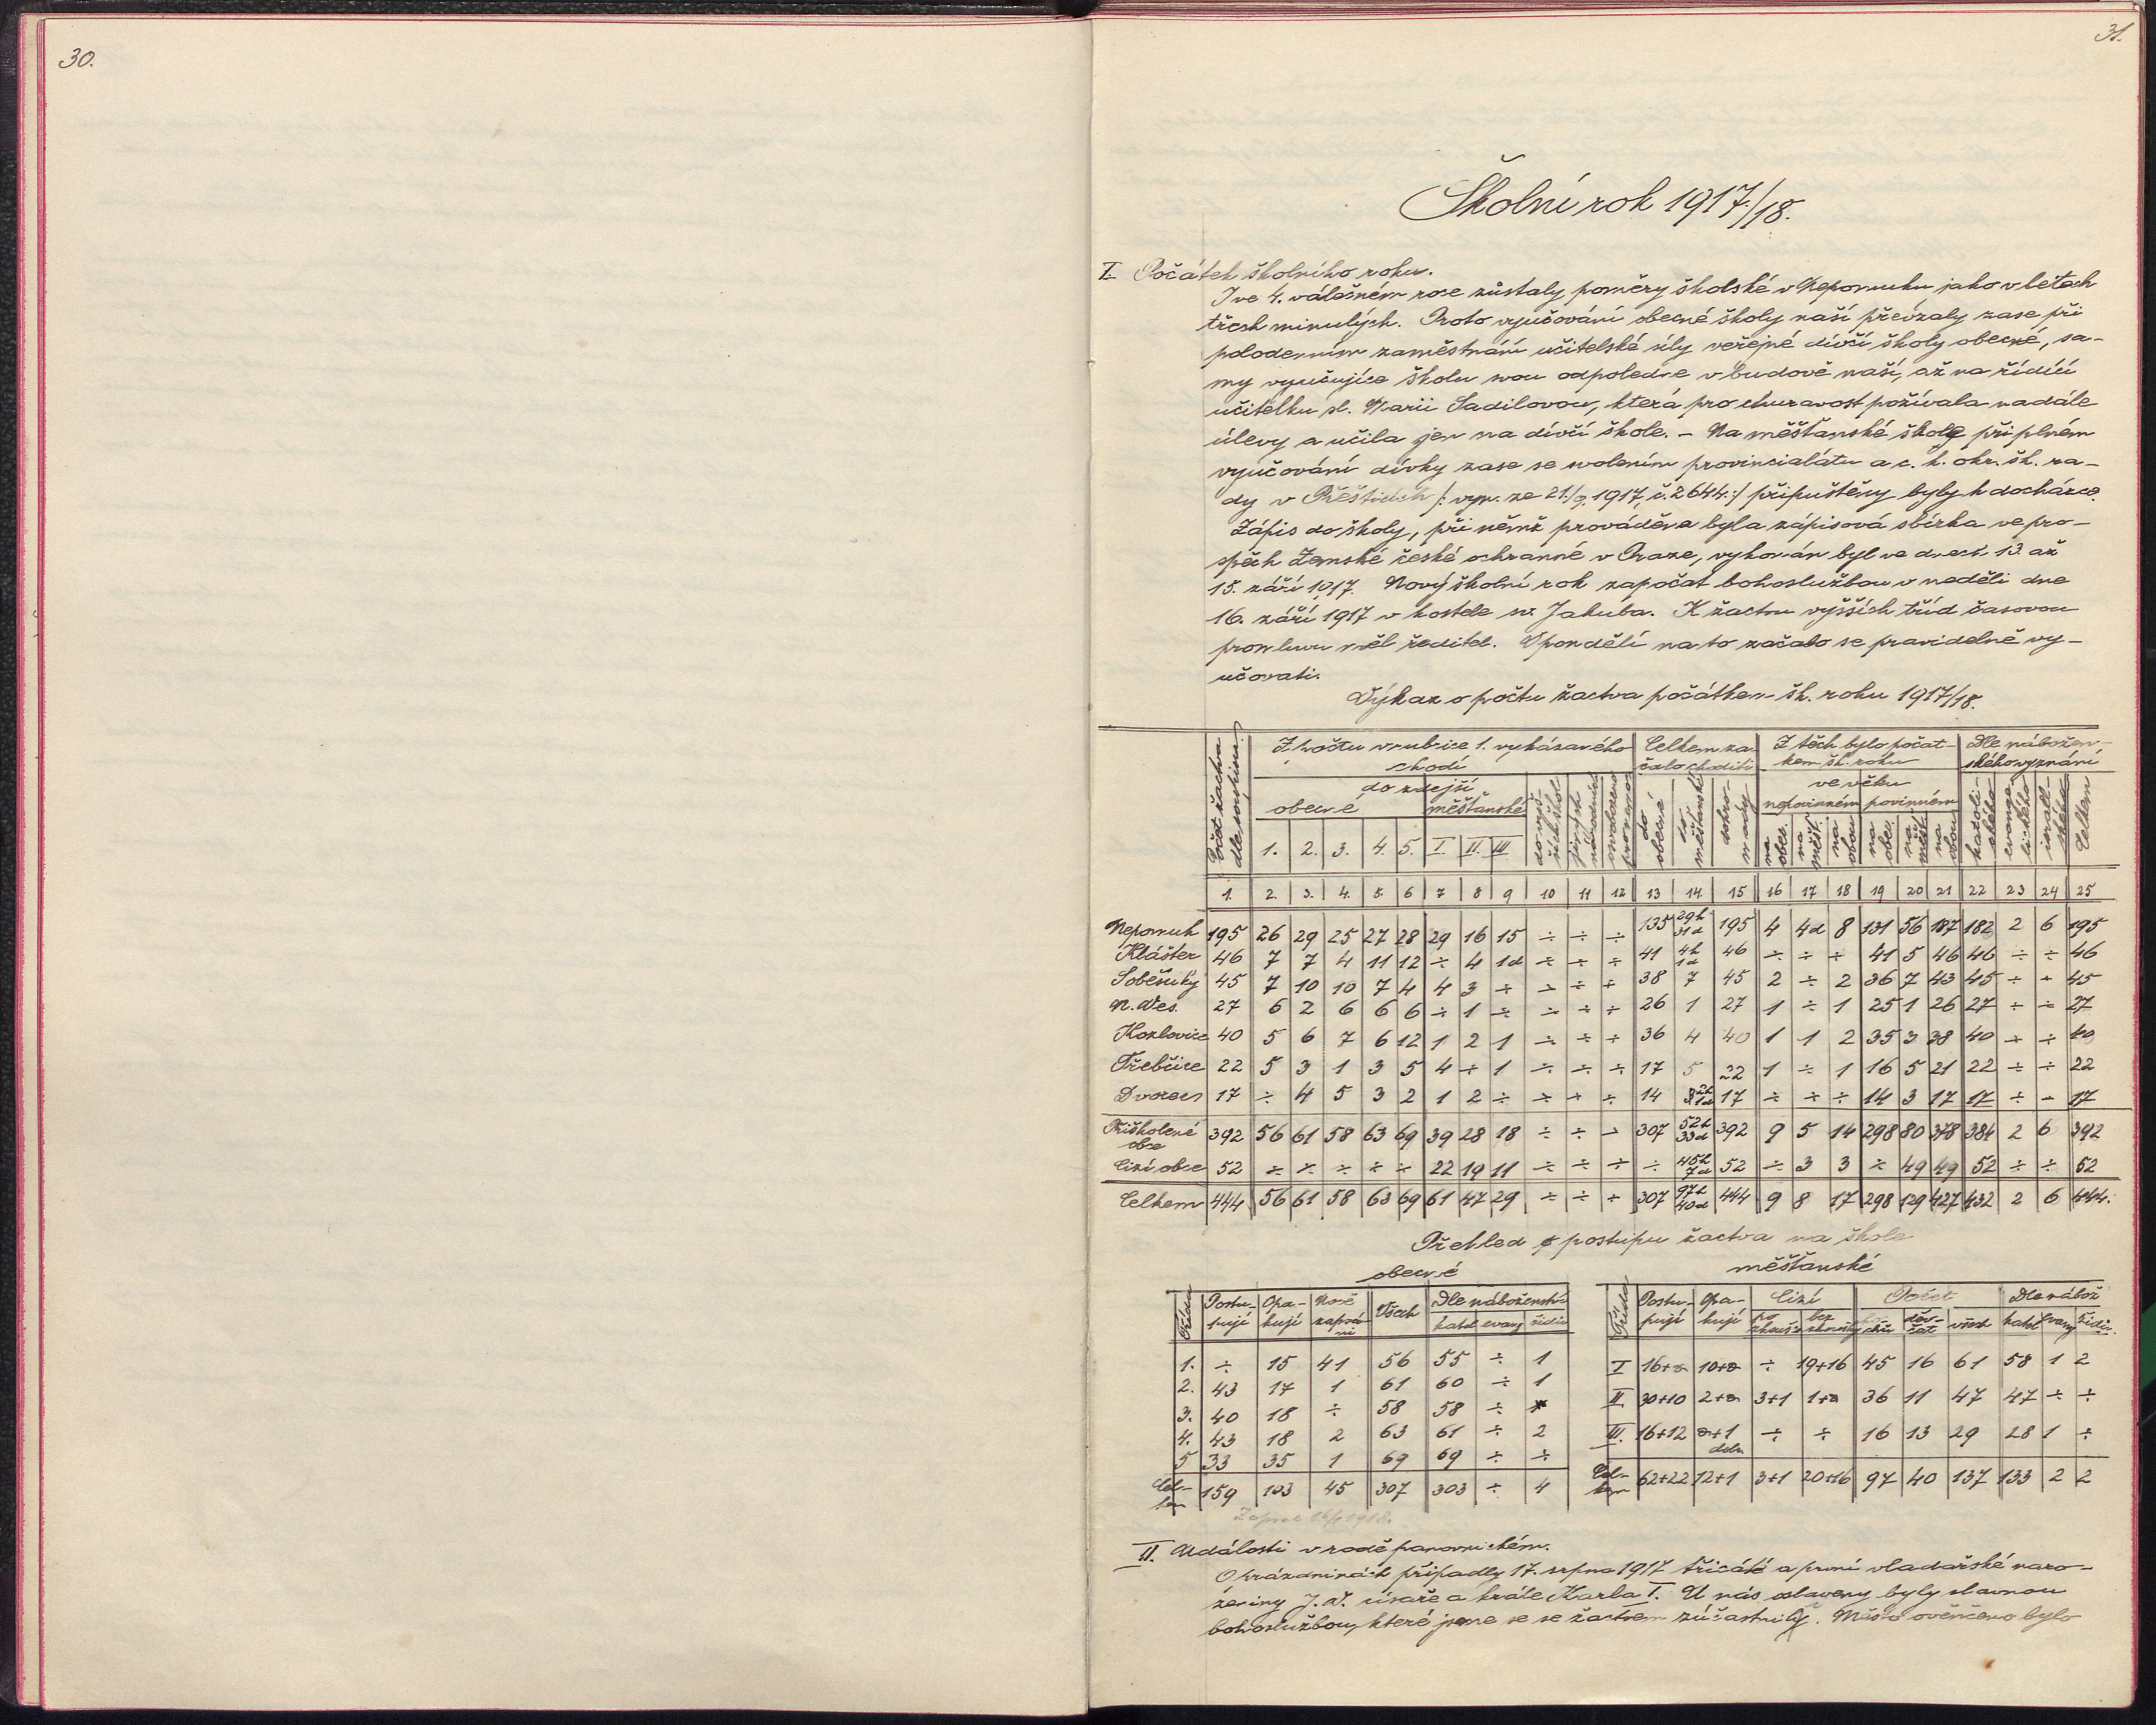 30.
31.
Školní rok 1917/18.
I. Počátek školního roku.
I ve 4. válečném roce zůstaly poměry školské v Nepomuku jako v letech
třech minulých. Proto vyučování obecné školy naší převzaly zase při
polodenním zaměstnání učitelské síly veřejné dívčí školy obecné, sa-
my vyučujíce školu svou odpoledne v budově naší, až na řídící
učitelku sl. Marii Sadilovou, která pro churavost požívala nadále
úlevy a učila jen na dívčí škole. – Na měšťanské škole při plném
vyučování dívky zase se svolením provincialátu a c. k. okr. šk. ra-
dy v Přešticích /: vyn. ze 21./9. 1917, č. 2644 :/ připuštěny byly k docházce.
Zápis do školy, při němž prováděna byla zápisová sbírka ve pro-
spěch Zemské české ochranné v Praze, vykonán byl ve dnech 13. až
15. září 1917. Nový školní rok započat bohoslužbou v neděli dne
16. září 1917 v kostele sv. Jakuba. K žactvu vyšších tříd časovou
promluvu měl ředitel. V pondělí na to začalo se pravidelně vy-
učovati.
Výkaz o počtu žactva počátkem šk. roku 1917/18.
Počet žactva dle soupisu
Z počtu v rubrice 1. vykázaného chodí
Celkem za- čalo choditi
Z těch bylo počát- kem šk. roku
Dle nábožen- ského vyznání
do zdejší
ve věku
obecné měšťanské
nepovinném povinném
1. 2. 3. 4. 5. I. II. III
do obecné do měšťanské dohro- mady na obec. na měšť. na obou na obec. na měšť. na obou katoli- ckého evange- lického israel- ského Celkem
1. 2. 3. 4. 5. 6 7 8 9 10 11 12 13 14 15 16 17 18 19 20 21 22 23 24 25
Nepomuk 195 26 29 25 27 28 29 16 15 ÷ ÷ ÷ 135 29h 31d 195 4 4d 8 131 56 187 182 2 6 195
Klášter 46 7 7 4 11 12 ÷ 4 1d ÷ ÷ ÷ 41 4h 1d 46 ÷ ÷ ÷ 41 5 46 46 ÷ ÷ 46
Soběsuky 45 7 10 10 7 4 4 3 ÷ ÷ ÷ ÷ 38 7 45 2 ÷ 2 36 7 43 45 ÷ ÷ 45
N. Ves. 27 6 2 6 6 6 ÷ 1 ÷ ÷ ÷ ÷ 26 1 27 1 ÷ 1 25 1 26 27 ÷ ÷ 27
Kozlovice 40 5 6 7 6 12 1 2 1 ÷ ÷ ÷ 36 4 40 1 1 2 35 3 38 40 ÷ ÷ 40
Třebčice 22 5 3 1 3 5 4 ÷ 1 ÷ ÷ ÷ 17 5 22 1 ÷ 1 16 5 21 22 ÷ ÷ 22
Dvorec 17 ÷ 4 5 3 2 1 2 ÷ ÷ ÷ ÷ 14 2h 1d 17 ÷ ÷ ÷ 14 3 17 17 ÷ ÷ 17
Přiškolené obce 392 56 61 58 63 69 39 28 18 ÷ ÷ ÷ 307 52h 33d 392 9 5 14 298 80 378 384 2 6 392
Cizí obce 52 ÷ ÷ ÷ ÷ ÷ 22 19 11 ÷ ÷ ÷ ÷ 45h 7d 52 ÷ 3 3 ÷ 49 49 52 ÷ ÷ 52
Celkem 444 56 61 58 63 69 61 47 29 ÷ ÷ ÷ 307 97h 40d 444 9 8 17 298 129 427 432 2 6 444.
Přehled o postupu žactva na škole
obecné
Třída Postu- pují Opa- kují Nově zapsá- ni Všech Dle náboženství katol evang židů
1. ÷ 15 41 56 55 ÷ 1
2. 43 17 1 61 60 ÷ 1
3. 40 18 ÷ 58 58 ÷
4. 43 18 2 63 61 ÷ 2
5 33 35 1 69 69 ÷ ÷
Cel- kem 159 103 45 307 303 ÷ 4
měšťanské
Třída Postu- pují Opa- kují Cizí po zkoušce bez zkoušky Počet děv- čat všech Dle nábož katol evang židů
I 16+ 10+ ÷ 19+16 45 16 61 58 1 2
II. 30+10 2+ 3+1 1+ 36 11 47 47 ÷ ÷
III. 16+12 +1 ÷ ÷ 16 13 29 28 1 ÷
Cel- kem 62+22 12+1 3+1 20+16 97 40 137 133 2 2
II. Události v rodě panovnickém.
O prázdninách připadly 17. srpna 1917 třicáté a první vladařské naro-
zeniny J. V. císaře a krále Karla I. U nás oslaveny byly slavnou
bohoslužbou, které jsme se se žactvem zúčastnili. Město ověnčeno bylo